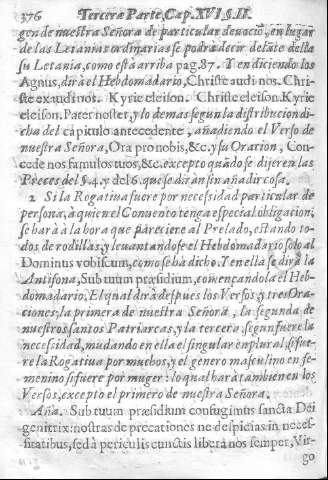 376 Tercera Parte, Cap. XVI §. II.
gen de nuestra Señora de particular deuociõ, en lugar
de las Letanias ordinarias se podrá decir delãte della
su Letania, como està arriba pag. 87. Y en diciendo los
Agnus, dirá el Hebdomadario, Christe audi nos. Chri-
ste exaudi nos. Kyrie eleison. Christe eleison. Kyrie
eleison. Pater noster, y lo demas segun la distribucion di-
cha del capitulo antecedente, añadiendo el Verso de
nuestra Señora, Ora pro nobis, &c. y su Oracion, Con-
cede nos famulos tuos, &c. excepto quãdo se dijeren las
Preces del §. 4. y del 6. que se dirán sin añadir cosa.
2 Si la Rogativa fuere por necesidad particular de
persona, à quien el Conuento tenga especial obligacion;
se hará à la hora que pareciere al Prelado, estando to-
dos de rodillas; y leuantandose el Hebdomadario solo al
Dominus vobiscum, como se ha dicho. Y en ella se dirá la
Antifona, Sub tuum præsidium, comẽçandola el Heb-
domadario, El qual dirá despues los Versos, y tres Ora-
ciones; la primera de nuestra Señora, la segunda de
nuestros santos Patriarcas, y la tercera, segun fuere la
necesidad, mudando en ella el singular en plural, si fue-
re la Rogatiua por muchos, y el genero masculino en fe-
menino si fuere por muger: lo qual hará tambien en los
Versos, excepto el primero de nuestra Señora.
Aña. Sub tuum præsidium confugimus sancta Dei
genitrix: nostras deprecationes ne despicias in neces-
sitatibus, sed à periculis cunctis libera nos semper, Vir-
go